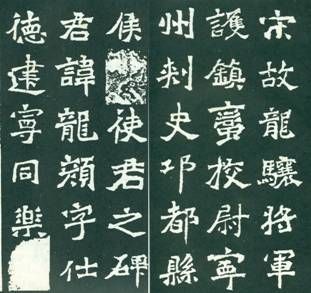 宋故龍驤將軍
護鎮蠻校尉寧
州刾史邛都縣
侯使君之碑
君諱龍顏字仕
德建寧同樂